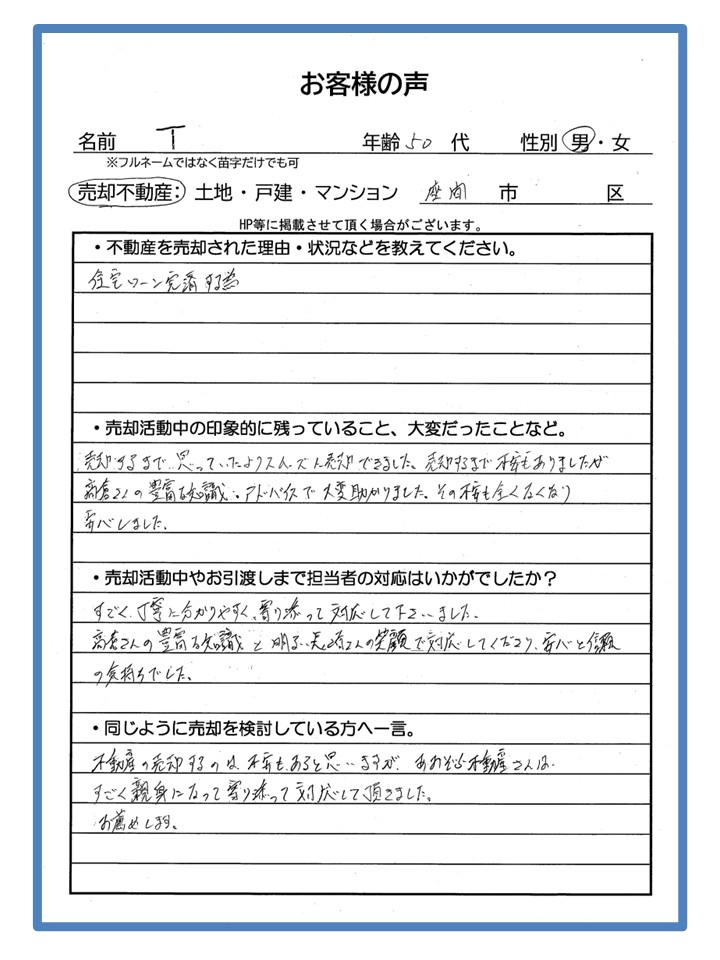 お客様の声
名前 T 年齢 50 代 性別 男・女
※フルネームではなく苗字だけでも可
売却不動産： 土地・戸建・マンション 座間 市 区
HP等に掲載させて頂く場合がございます。
・不動産を売却された理由・状況などを教えてください。
住宅ローン完済する為
・売却活動中の印象的に残っていること、大変だったことなど。
売却するまで、思っていたよりスムーズに売却できました。売却するまで不安もありましたが
高倉さんの豊富な知識、アドバイスで大変助かりました。その不安も全くなくなり
安心しました。
・売却活動中やお引渡しまで担当者の対応はいかがでしたか？
すごく、丁寧に分かりやすく、寄り添って対応して下さいました。
高倉さんの豊富な知識と明るい長崎さんの笑顔で対応してくださり、安心と信頼
の気持ちでした。
・同じように売却を検討している方へ一言。
不動産の売却するのは、不安もあると思いますが、あおぞら不動産さんは
すごく親身になって寄り添って対応して頂きました。
お薦めします。